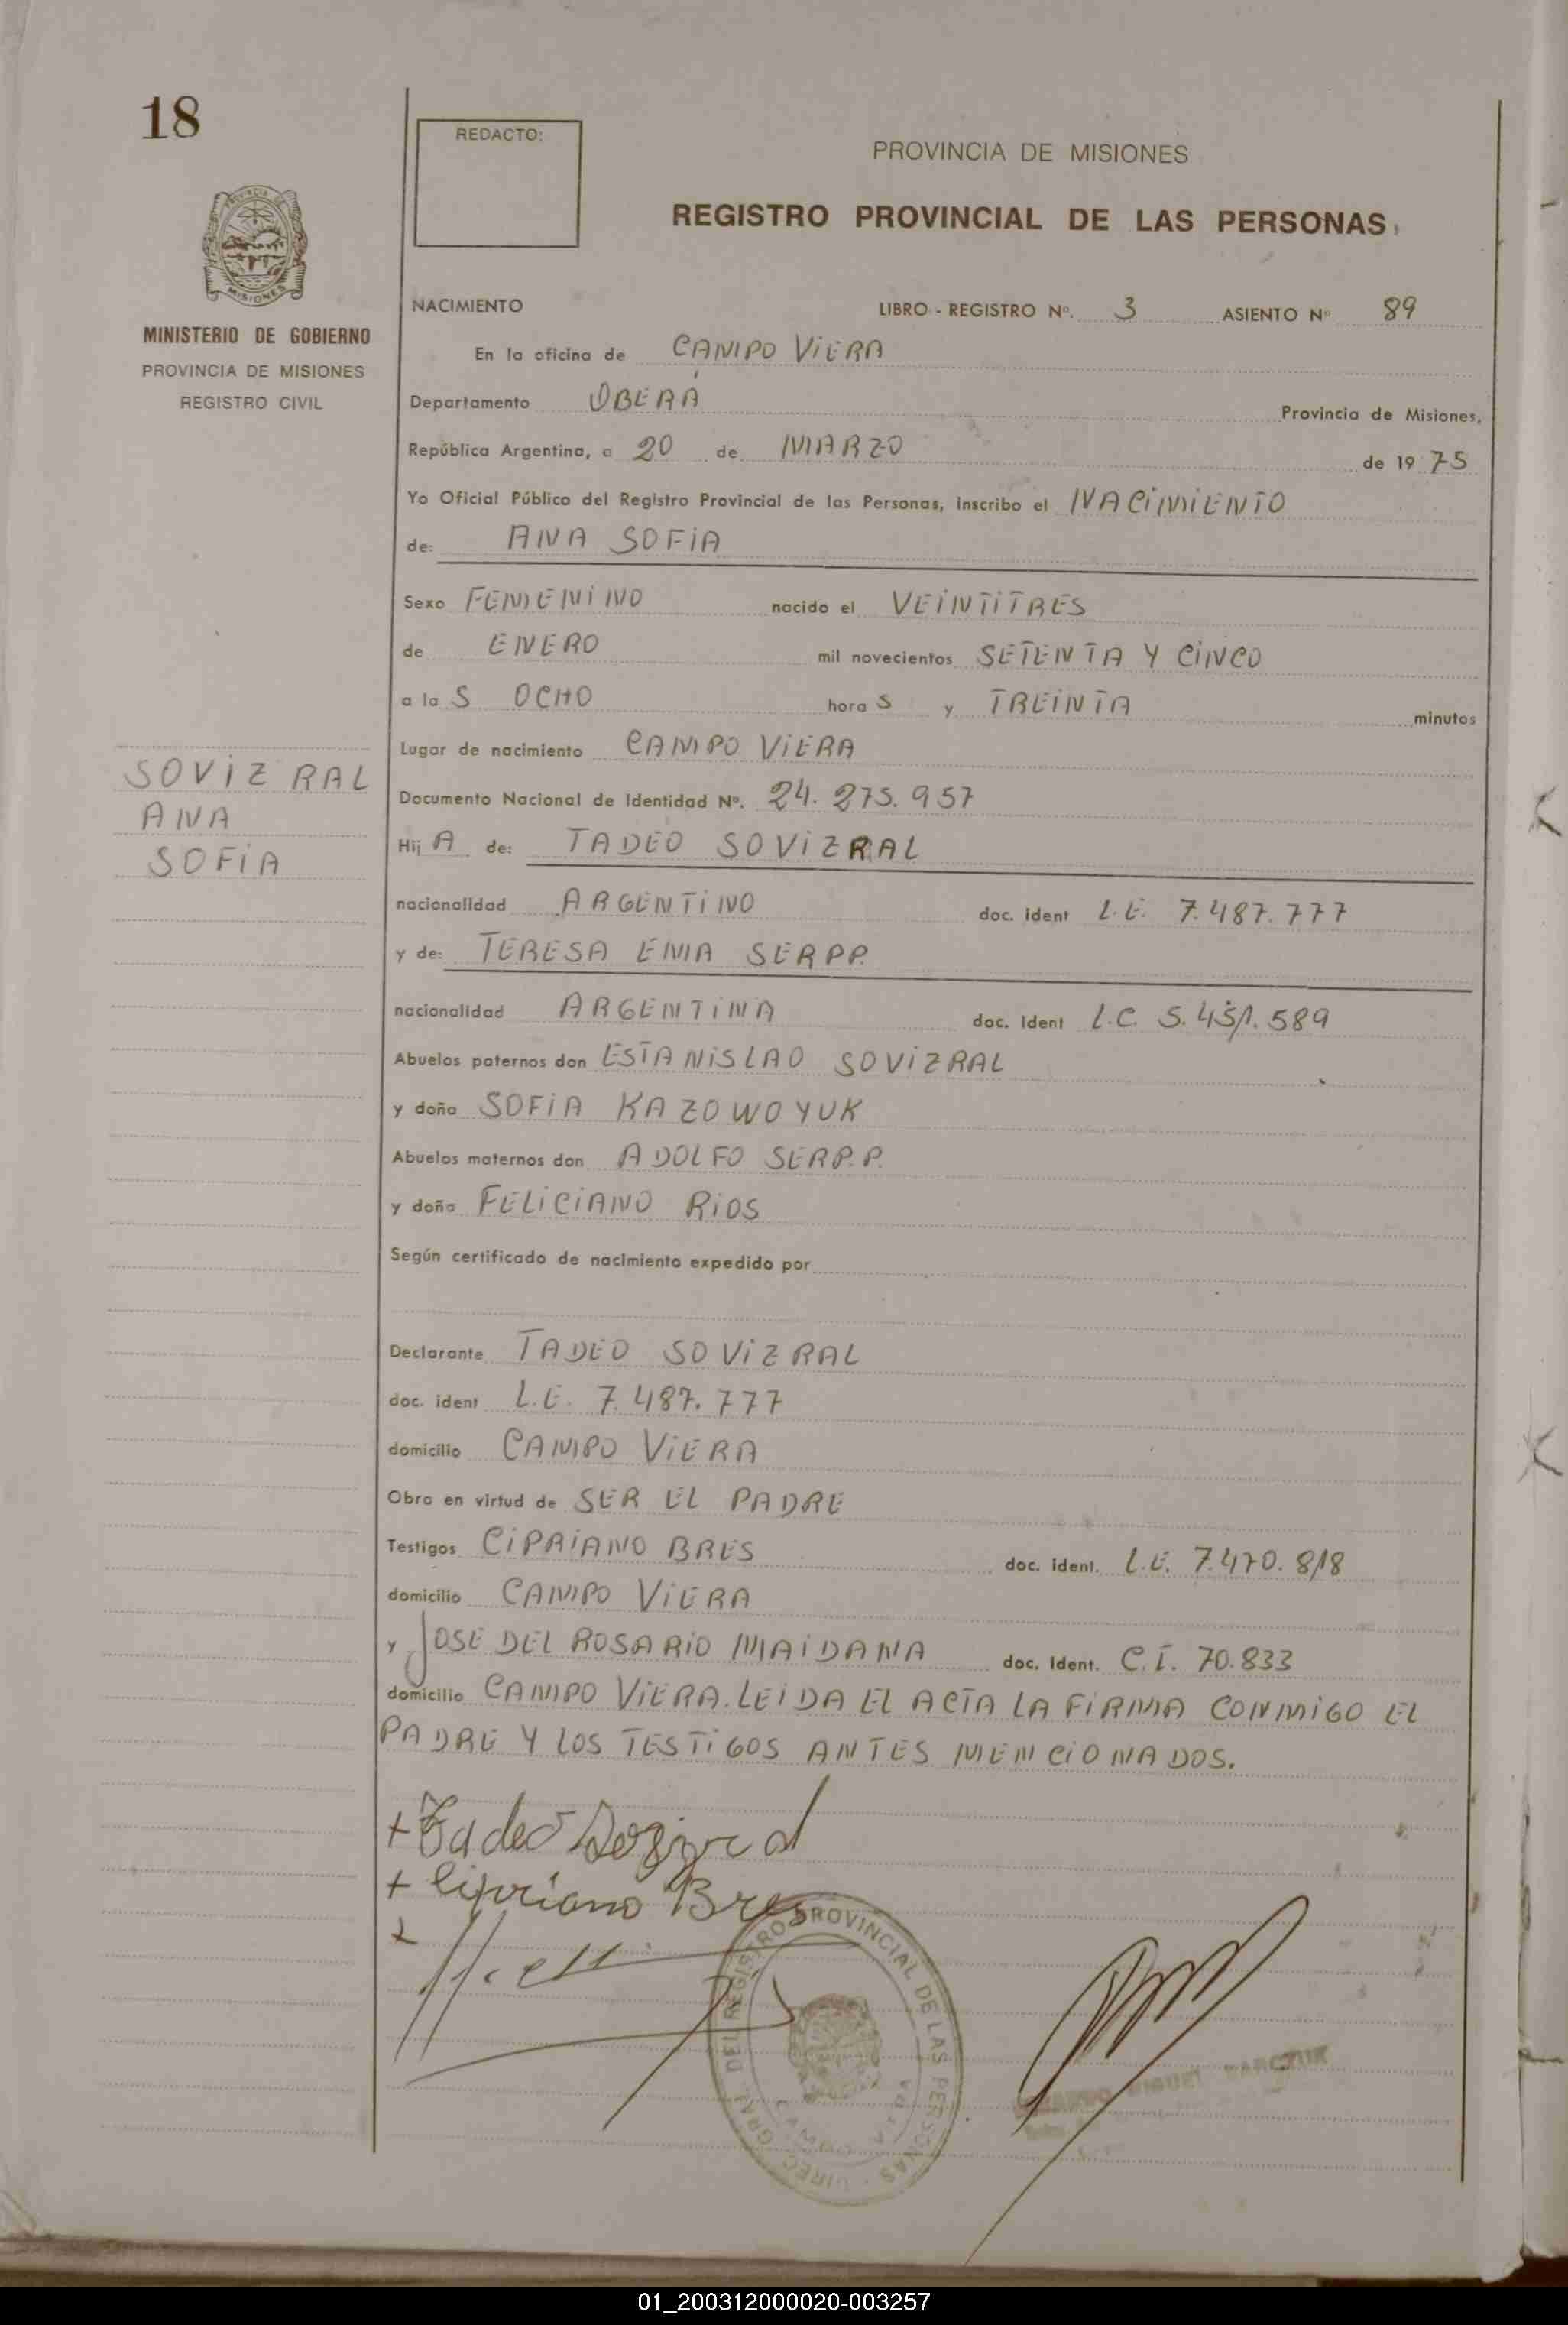 18
REDACTO:
PROVINCIA DE MISIONES
REGISTRO PROVINCIAL DE LAS PERSONAS
PROVINCIA DE
MISIONES
MINISTERIO DE GOBIERNO
PROVINCIA DE MISIONES
REGISTRO CIVIL
NACIMIENTO LIBRO - REGISTRO Nº. 3 ASIENTO Nº 89
En la oficina de CAMPO ViERA
Departamento OBERÁ Provincia de Misiones,
República Argentina, a 20 de MARZO de 19 75
Yo Oficial Público del Registro Provincial de las Personas, inscribo el NACiMiENTO
de: ANA SOFiA
Sexo FEMENiNO nacido el VEiNTiTRES
de ENERO mil novecientos SETENTA Y CiNCO
a la S OCHO hora S y TREiNTA minutos
Lugar de nacimiento CAMPO ViERA
SOViZRAL
ANA
SOFiA
Documento Nacional de Identidad Nº. 24.275.957
Hij A de: TADEO SOViZRAL
nacionalidad ARGENTiNO doc. ident L.E. 7.487.777
y de: TERESA EMA SERPP.
nacionalidad ARGENTiNA doc. Ident L.C. 5.451.589
Abuelos paternos don ESTANiSLAO SOViZRAL
y doña SOFiA KAZOWOYUK
Abuelos maternos don ADOLFO SERP.P.
y doña FELiCiANO RiOS
Según certificado de nacimiento expedido por
Declarante TADEO SOViZRAL
doc. ident L.E. 7.487.777
domicilio CAMPO ViERA
Obra en virtud de SER EL PADRE
Testigos CiPRiANO BRES doc. ident. L.E. 7.470.818
domicilio CAMPO ViERA
y JOSE DEL ROSARiO MAiDANA doc. Ident. C.I. 70.833
domicilio CAMPO ViERA. LEiDA EL ACTA LA FiRMA CONMiGO EL
PADRE Y LOS TESTiGOS ANTES MENCiONADOS.
+ Tadeo Sozizral
+ Cipriano Bres
+
DIREC. GRAL. DEL REGISTRO PROVINCIAL DE LAS PERSONAS
MIGUEL
01_200312000020-003257